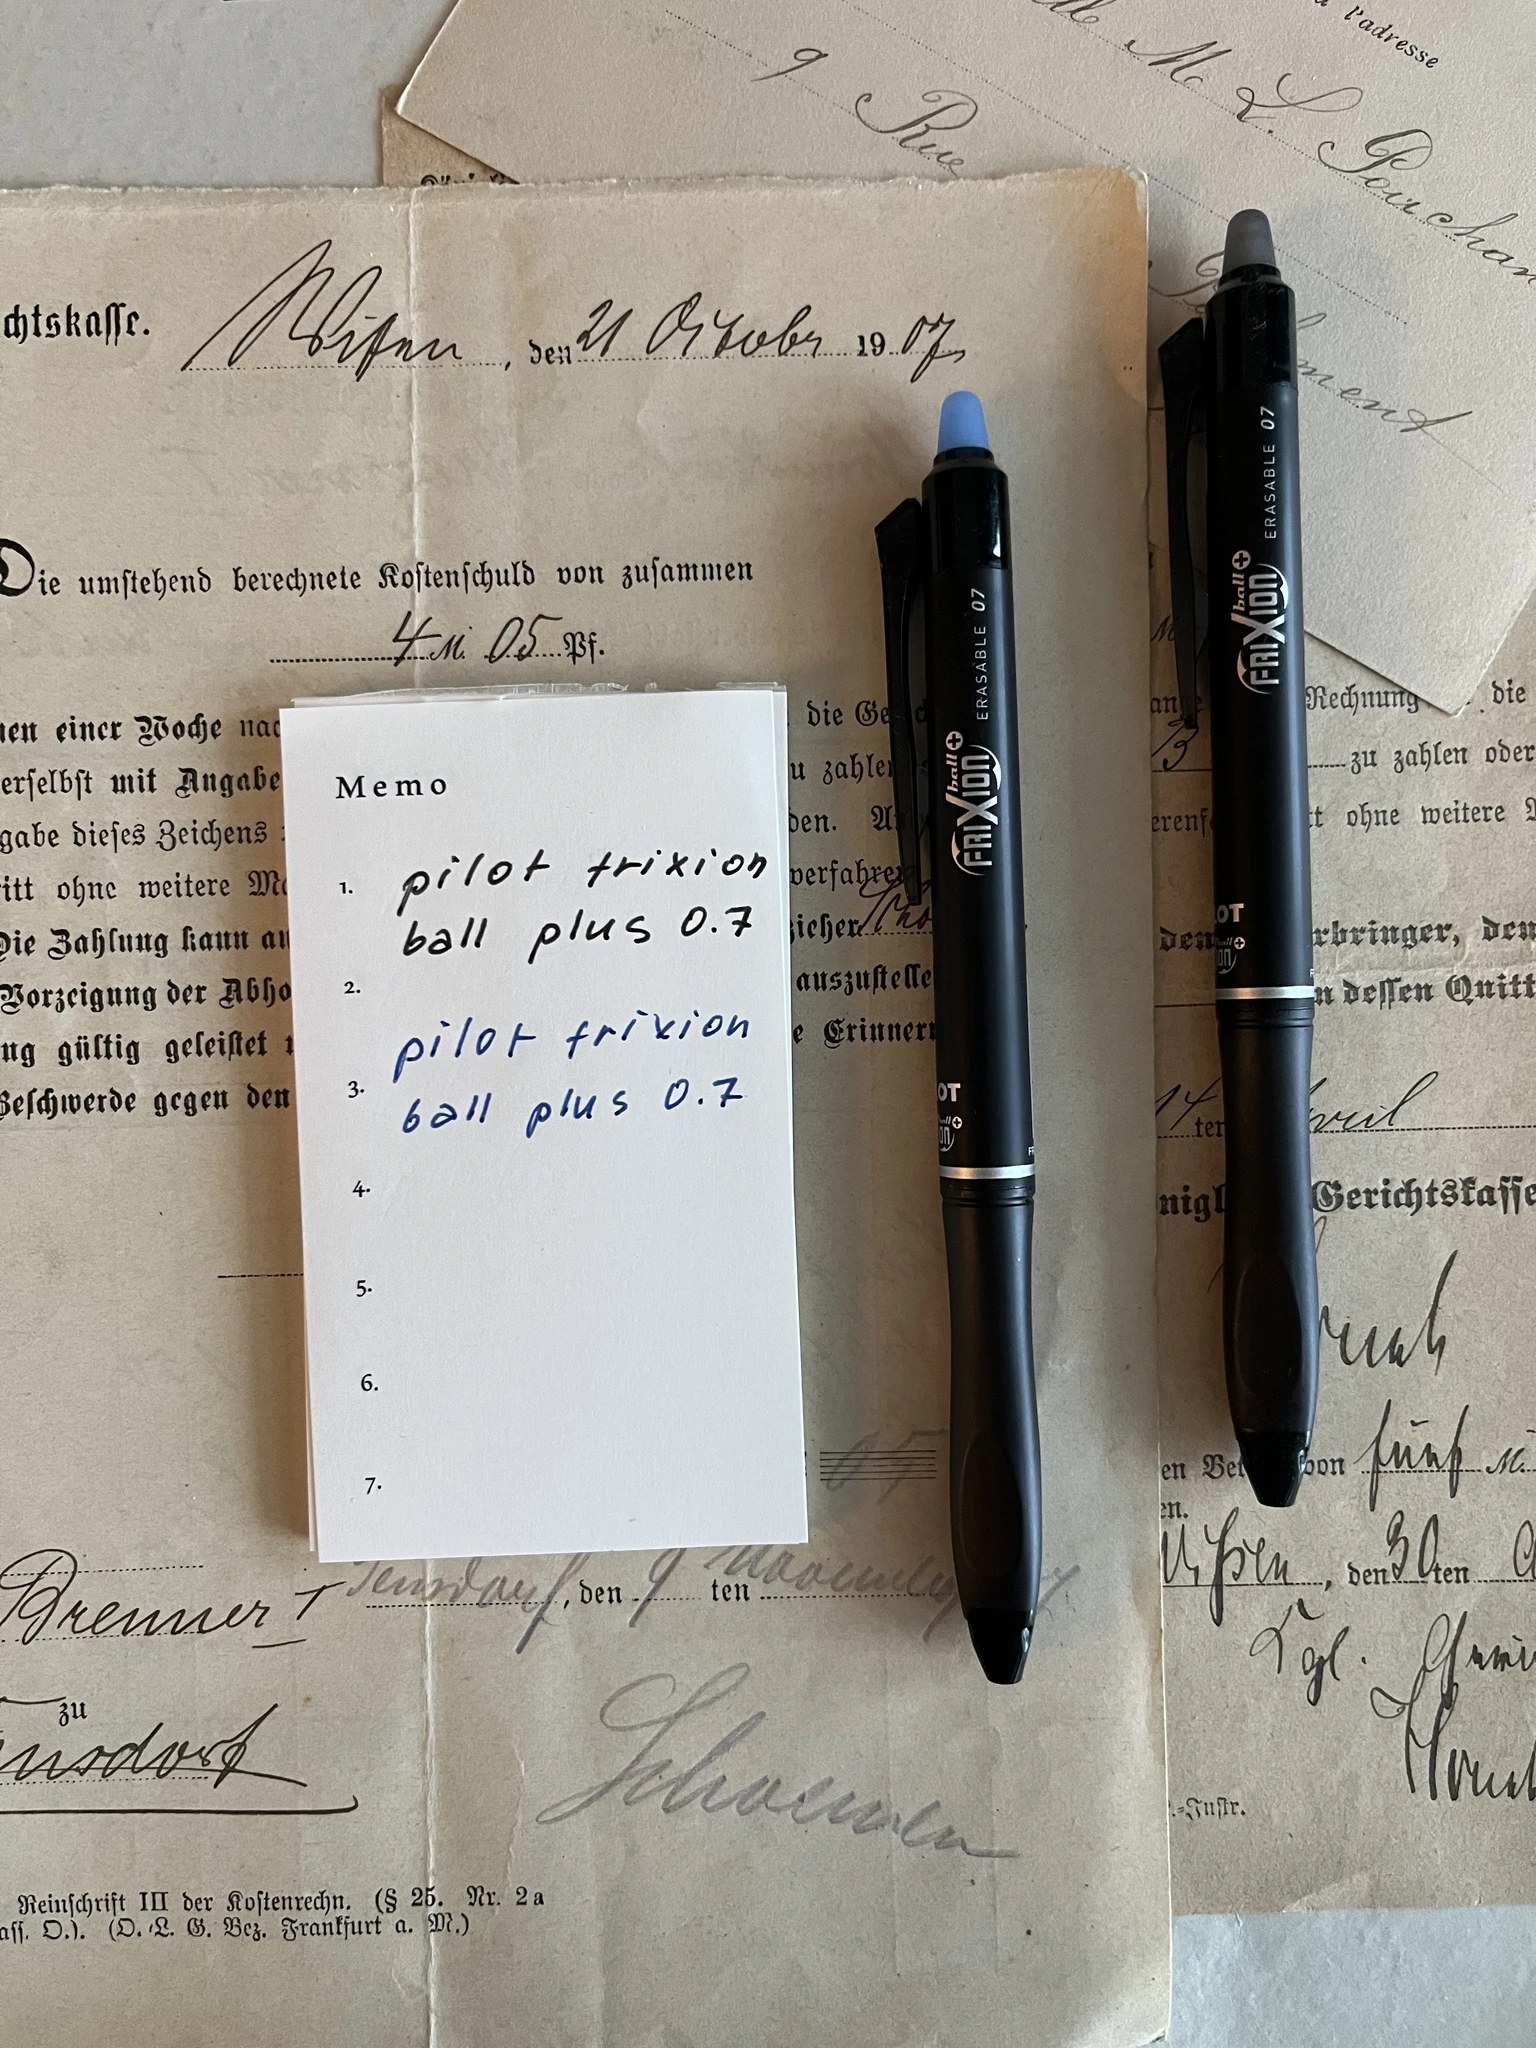 à l'adresse
M. L.
9 Rue
chtskasse.
, den 21 October 1907
Die umstehend berechnete Kostenschuld von zusammen
4 M. 05 Pf.
nen einer Woche nac
erselbst mit Angabe
gabe dieses Zeichens
ritt ohne weitere Ma
Die Zahlung kann au
Vorzeigung der Abho
ng gültig geleistet
Beschwerde gegen den
die Ge
zu zahlen
den.
verfahren
zicher
auszustelle
e Erinner
Memo
1. pilot frixion
ball plus 0.7
2.
pilot frixion
3. ball plus 0.7
4.
5.
6.
7.
ERASABLE 07
FRIXION ball+
OT
ERASABLE 07
FRIXION ball+
LOT
Rechnung die
zu zahlen oder
tt ohne weitere
den
rbringer, den
n dessen Quitt
14 ten April
Gerichtskasse
en Be von fünf M.
en.
, den 30ten
Kgl.
.=Instr.
05
Tensdorf, den 9 ten November 07
Brenner I
zu
ensdorf
Schoemen
Reinschrift III der Kostenrechn. (§ 25. Nr. 2a
ass. O.). (O. L. G. Bez. Frankfurt a. M.)